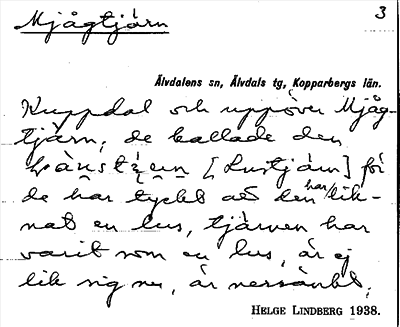 Mjågtjärn
3
Älvdalens sn, Älvdals tg, Kopparbergs län.
Kuppdal och uppöver Mjåg-
tjärn, de kallade den
[Lustjärn] för
de har tyckt att den har lik-
nat en lus, tjärnen har
varit som en lus, är ej
lik sig nu, är nersänkt.
HELGE LINDBERG 1938.